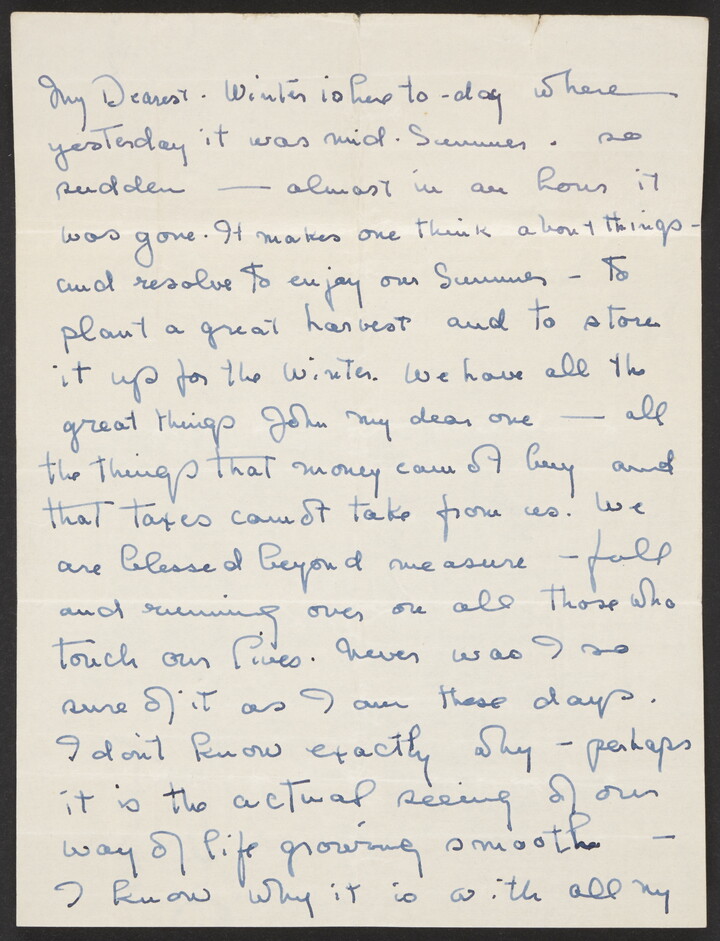 My Dearest. Winter is here to-day where
yesterday it was mid-Summer. so
sudden — almost in an hour it
was gone. It makes one think about things -
and resolve to enjoy our Summer - to
plant a great harvest and to store
it up for the Winter. We have all the
great things John my dear one — all
the things that money cannot buy and
that taxes cannot take from us. We
are blessed beyond measure - full
and running over on all those who
touch our lives. Never was I so
sure of it as I am these days.
I don't know exactly why - perhaps
it is the actual seeing of our
way of life growing smooth —
I know why it is with all my